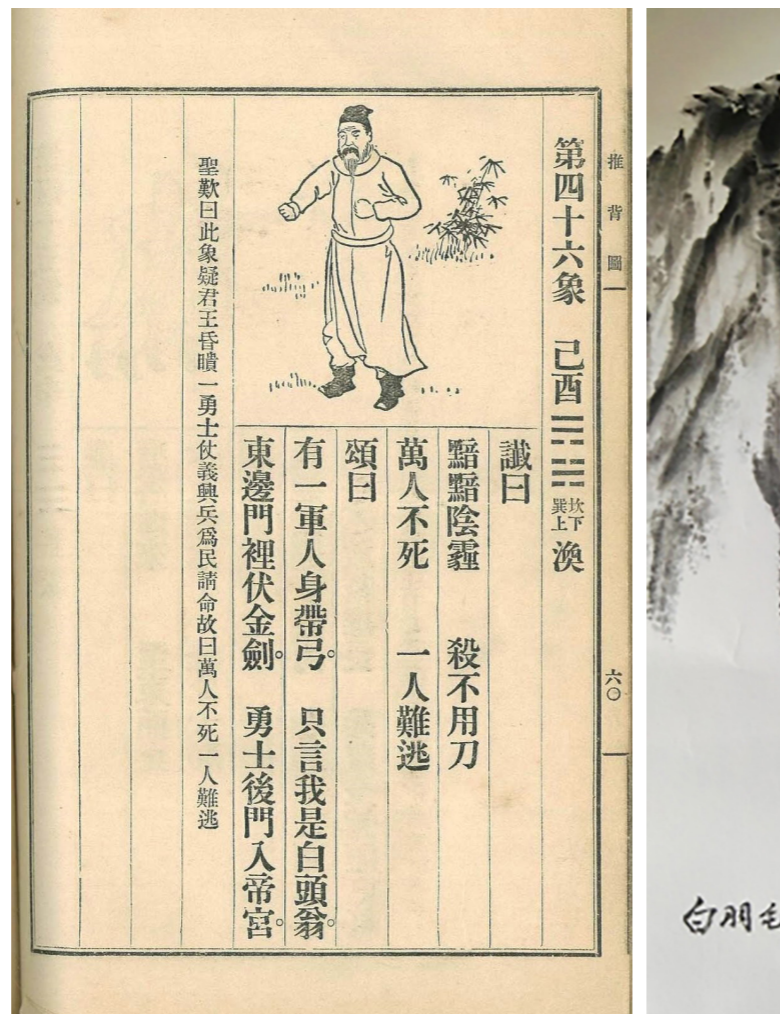 推背圖
六〇
第四十六象 己酉 坎下 巽上 渙
讖曰
黯黯陰霾 殺不用刀
萬人不死 一人難逃
頌曰
有一軍人身帶弓。 只言我是白頭翁。
東邊門裡伏金劍。 勇士後門入帝宮。
聖歎曰此象疑君王昏瞶一勇士仗義興兵爲民請命故曰萬人不死一人難逃
白羽毛